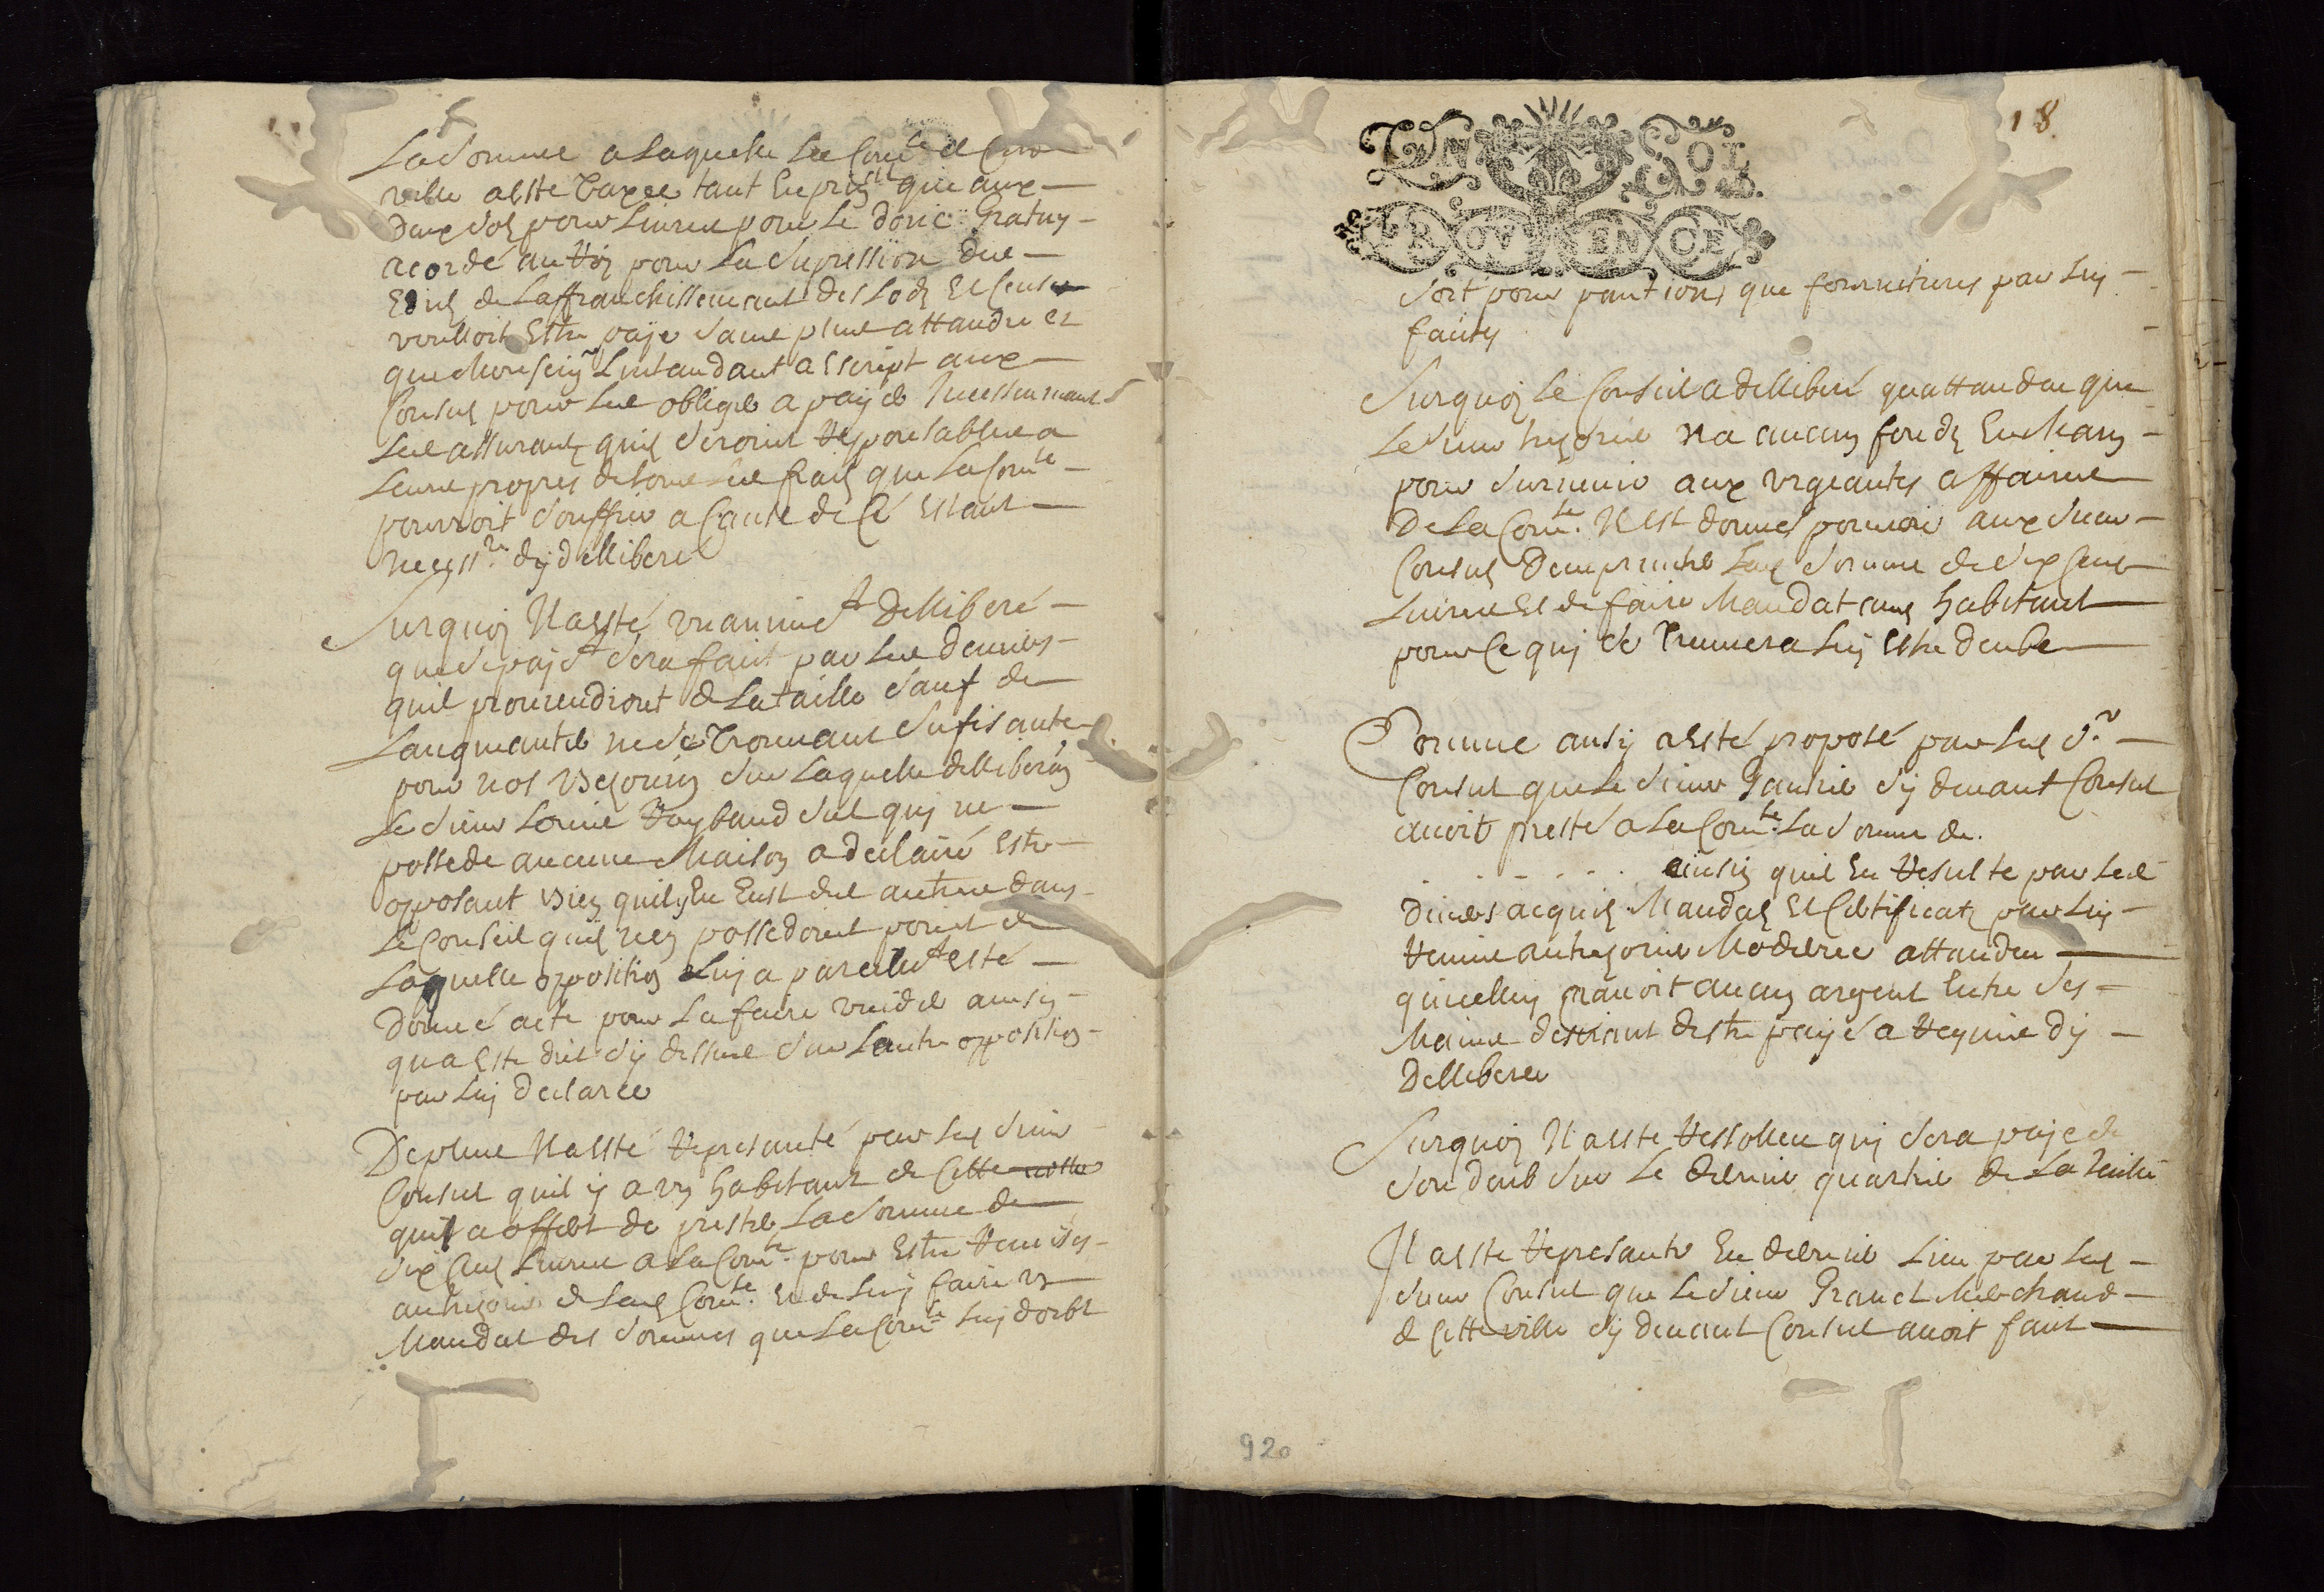 La somme a laquelle la Com.te de Cette
ville a esté taxée tant en prin.l que aux
deux sols pour livres pour le donc Gratuy
acordé au Roy pour la supression des
Edits de laffranchissement des lods et Cense
vouloit estre payé sans plus attandre et
que Monseig.r Lintandant a escript aux
Consuls pour les obliger a payer incessamant
les assurants quils seroint responsables a
leurs propres de tous les frais que la Com.te
pourroit souffrir a Cause de Ce estant
necess.re dy delliberer
Surquoy Il a esté unanimem.t Delliberé
que le payem.t sera fait par les deniers
quil prouiendront de la taille sauf de
Laugmanter ne se trouuant sufisante
pour nos besoins sur laquelle delliberaõn
Le sieur Louis Raybaud seul quy ne
possede aucune Maison a declairé estre
opposant bien quil y en eust des autres dans
Le Conseil quil nen possedoint point de
Laquelle opposition luy a pareillem.t esté
donné acte pour la faire vuider ainsy
qua esté dict cy dessus sur lautre opposition
par luy declarée
De plus Il a esté represanté par les sieurs
Consuls quil y a un habitant de Cette ville
quil a offert de prester la somme de
six Cens livres a la Com.te pour estre remises
au tresorier de lad Com.te et de luy faire un
Mandat des sommes que la Com.te luy doibt
18
UN SOL
PROVENCE
soit pour pantions que fournitures par luy
faites
Surquoy Le Conseil a delliberé quattandeu que
Le sieur tresorier na aucuns fonds en Mains
pour suruenir aux urgeantes affaires
De la Com.te Il est donné pouuoir aux sieurs
Consuls demprunter lad somme de six Cens
livres et de faire Mandat aud habitant
pour Ce quy se treuuera luy estre deube
Comme ausy a esté proposé par les s.rs
Consuls que Le sieur Gautier cy deuant Consul
auoit presté a la Com.te la somme de
. . . . . . ainsin quil en resulte par les
diuers acquits Mandats et Certificats par luy
remis au tresorier Moderne attandeu
quicelluy nauoit aucun argent entre ses
Mains desirant destre payé a requis dy
Delliberer
Surquoy Il a esté ressolleu quy sera payé de
son deub sur Le dernier quartier de La taille
Il a esté represanté en dernier lieu par les
sieurs Consuls que Le sieur Granet Merchand
de Cette ville cy deuant Consul auoit fait
920